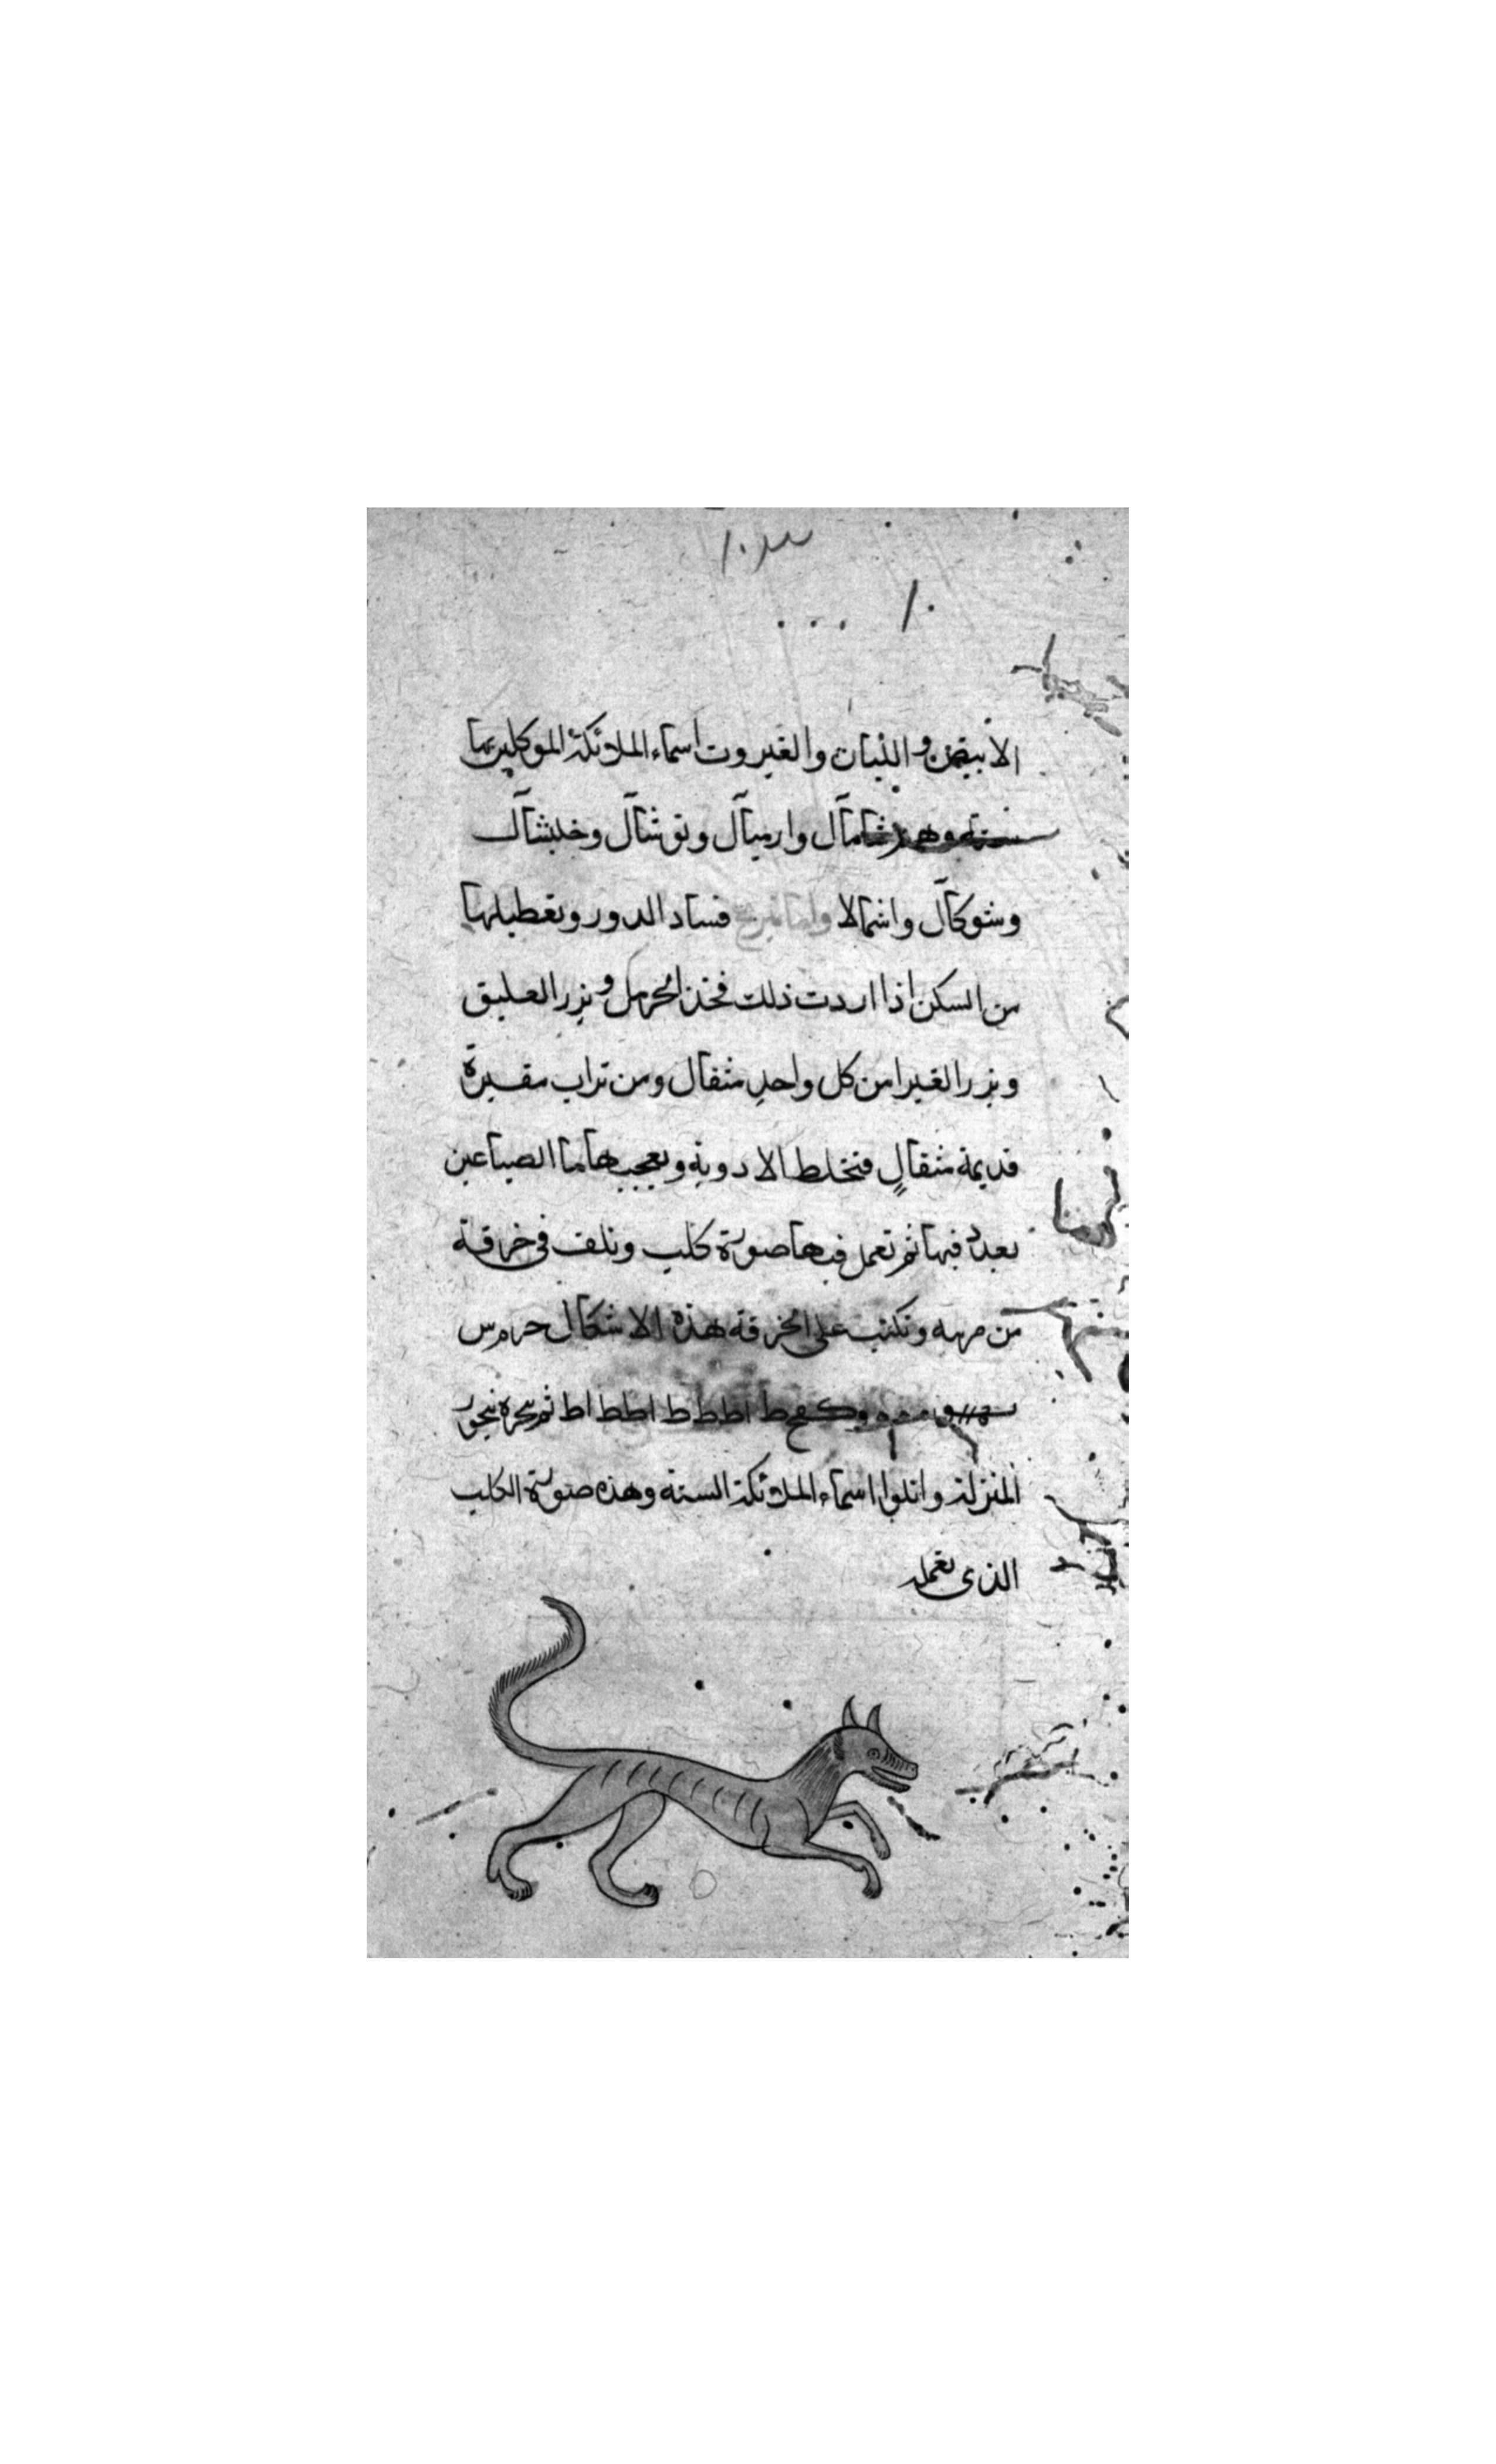 الابيض واللبان والغيروت اسماء الملائكة الموكلين بها
ستة وهم شامآل وارميآل ونوشآل وخلبشآل
وشوكآل واشمالا فساد الدور وتعطيلها
من السكن اذا اردت ذلك فخذ الحرمل وبزر العليق
وبزر الغبيرا من كل واحد مثقال ومن تراب مقبرة
قديمة مثقال فتخلط الادوية وتعجبها ما الصباعين
فيها ثم تعمل فيها صورة كلب وتلف فى خرقة
من وتكتب على الخرقة هذه الاشكال
ط اططط ط اطط اط ثم بخره ببخور
المنزلة واتلوا اسماء الملائكة الستة وهذه صورة الكلب
الذى تعمله